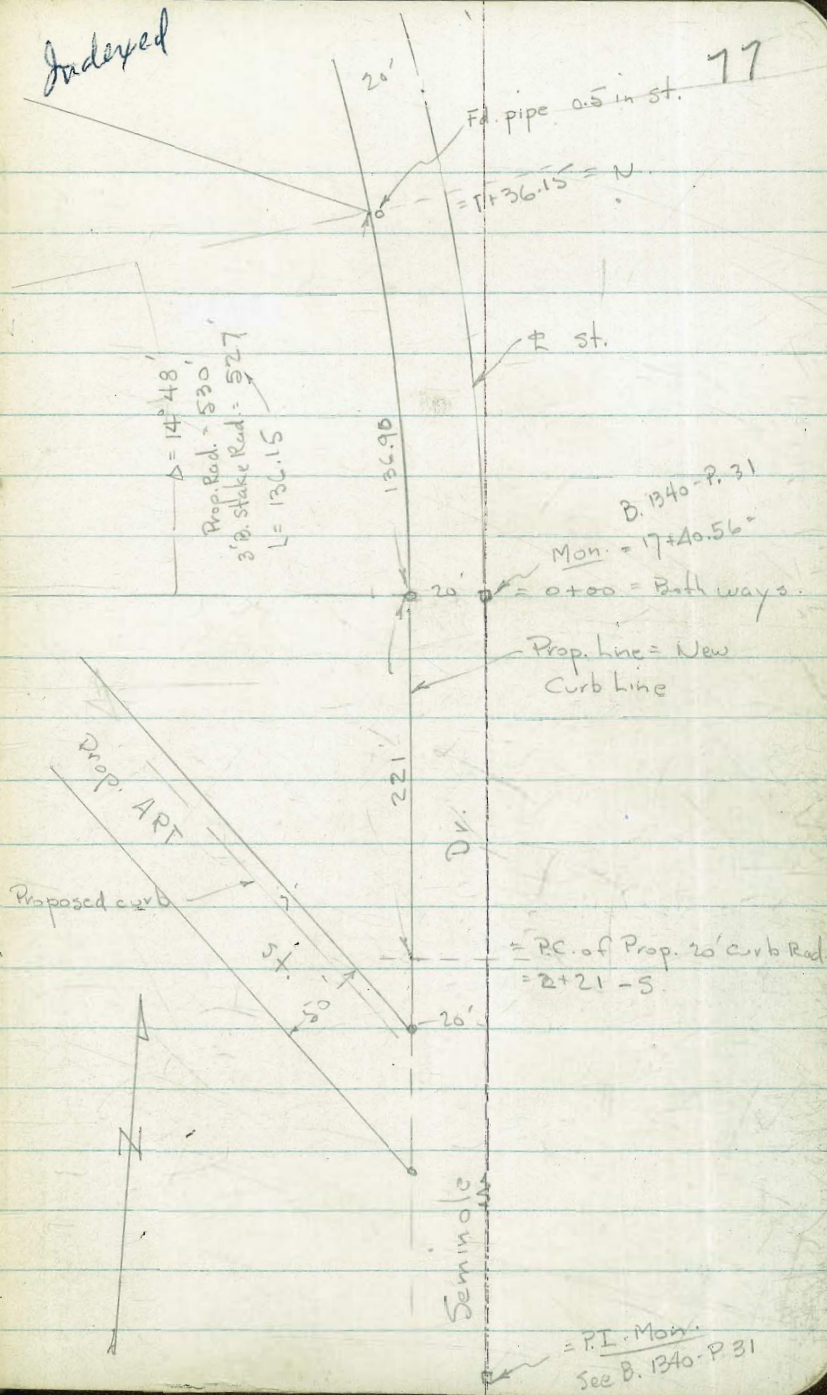 Indexed
77
20'
Fd. pipe 0.5 in st.
= 1+36.15 = N.
℄ st.
Δ = 14° 48'
Prop. Rad. = 530'
3' B. stake Rad. = 527'
L = 136.15
136.90
B. 1340 - P. 31
Mon. = 17+40.56 =
20'
= 0+00 = Both ways.
Prop. Line = New
Curb Line
221'
Prop. ART
Dr.
Proposed curb
7'
50'
= P.C. of Prop. 20' curb Rad
= 2+21 - S
20'
N
Seminole
= P.I. Mon.
See B. 1340 - P 31